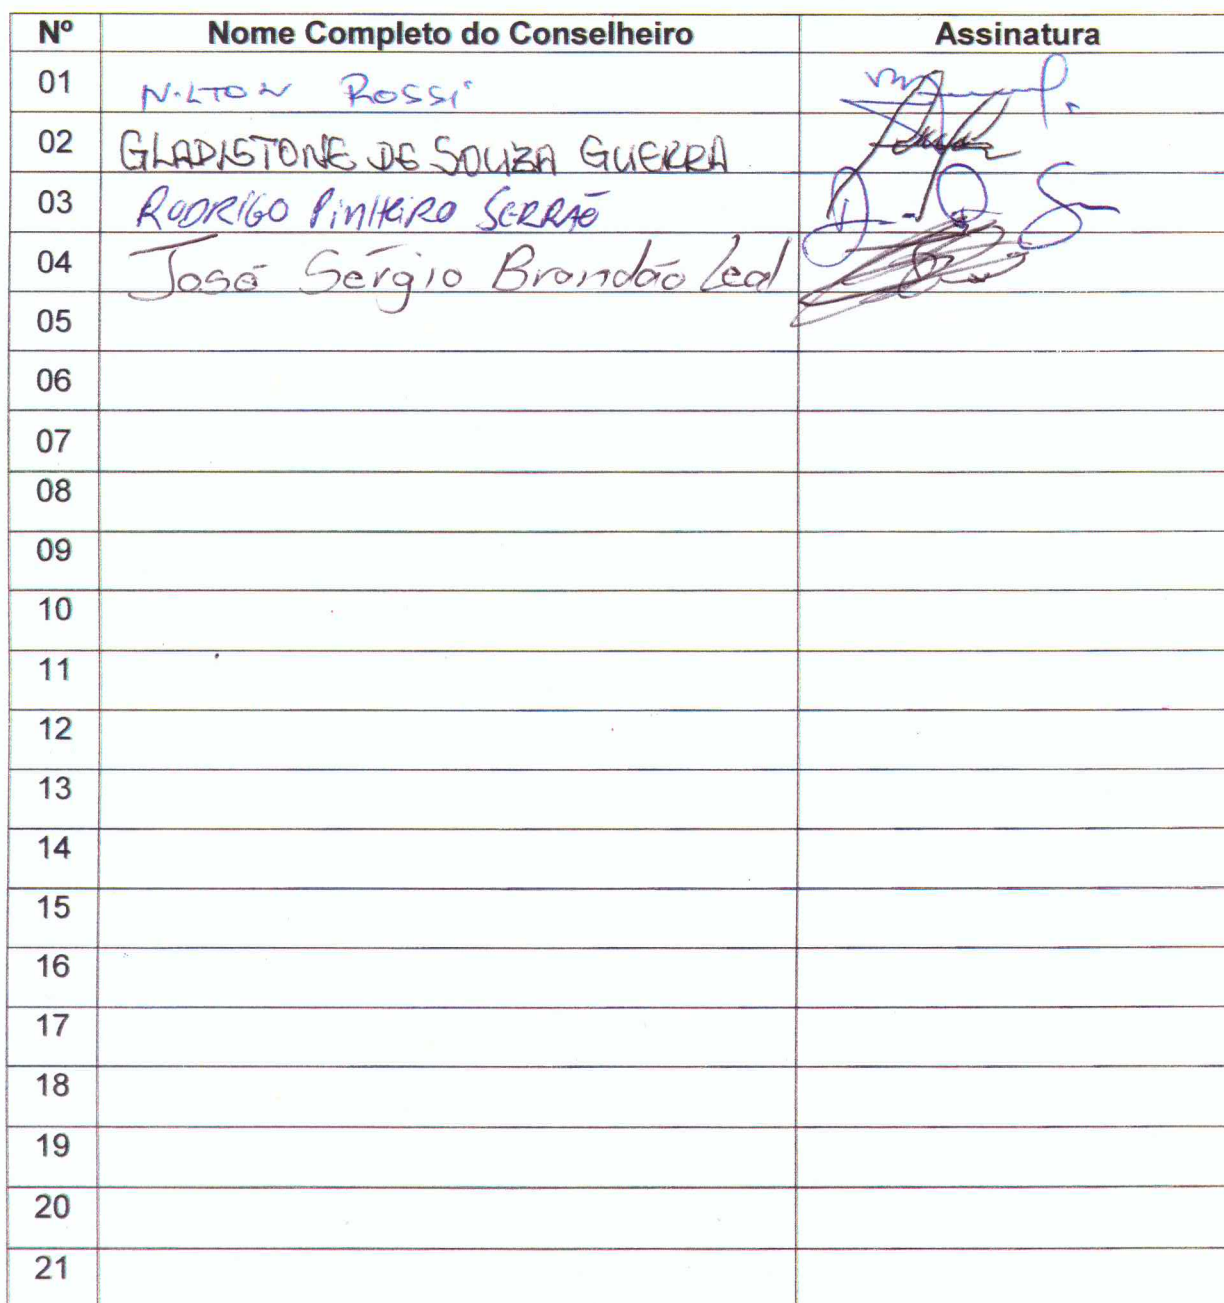 Nº Nome Completo do Conselheiro Assinatura
01 NILTON ROSSI
02 GLADISTONE DE SOUZA GUERRA
03 RODRIGO PINHEIRO SERRÃO
04 José Sérgio Brandão Leal
05
06
07
08
09
10
11
12
13
14
15
16
17
18
19
20
21